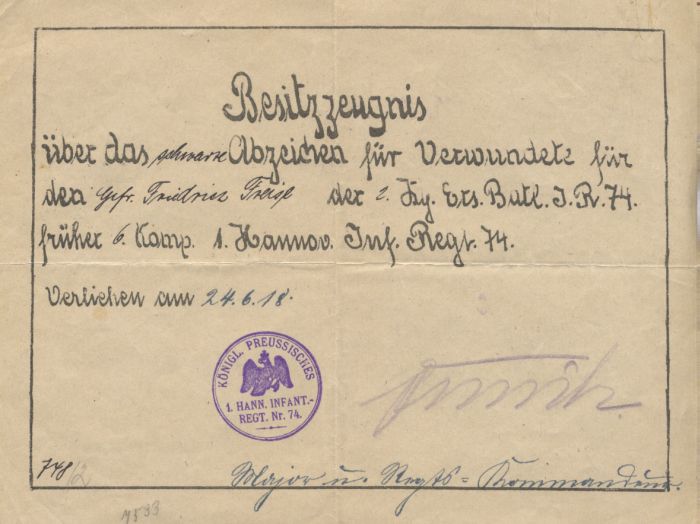 Besitzzeugnis
über das schwarze Abzeichen für Verwundete für
den Gefr. Friedrich Freise der 2. Kp. Ers. Batl. I. R. 74.
früher 6. Komp. 1. Hannov. Inf. Regt. 74.
Verliehen am 24.6.18.
KÖNIGL. PREUSSISCHES
1. HANN. INFANT.-
REGT. Nr. 74.
748/2
Major u. Regts-Kommandeur.
7533